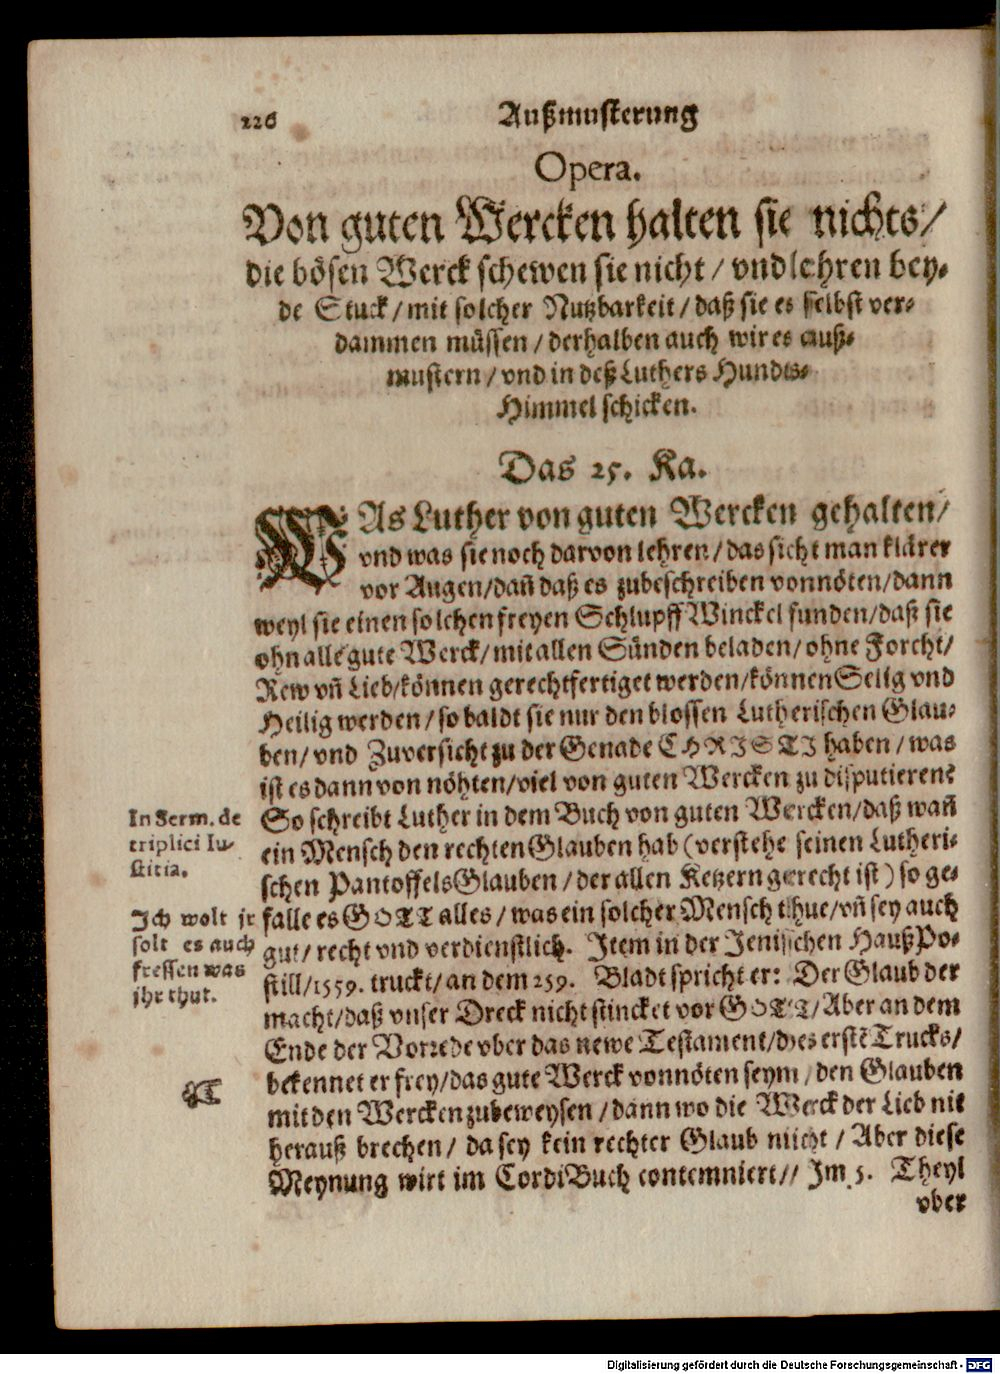 226 Außmusterung
Opera.
Von guten Wercken halten sie nichts/
die bösen Werck schewen sie nicht/ vnd lehren bey-
de Stuck/ mit solcher Nutzbarkeit/ daß sie es selbst ver-
dammen müssen/ derhalben auch wir es auß-
mustern/ vnd in deß Luthers Hundts-
Himmel schicken.
Das 25. Ka.
WAs Luther von guten Wercken gehalten/
vnd was sie noch darvon lehren/ das sicht man klärer
vor Augen/ dañ daß es zubeschreiben vonnöten/ dann
weyl sie einen solchen freyen Schlupff Winckel funden/ daß sie
ohn alle gute Werck/ mit allen Sünden beladen/ ohne Forcht/
Rew vñ Lieb/ können gerechtfertiget werden/ können Selig vnd
Heilig werden/ so baldt sie nur den blossen Lutherischen Glau-
ben/ vnd Zuversicht zu der Genade CHRISTI haben/ was
ist es dann von nöhten/ viel von guten Wercken zu disputieren?
In Serm. de
triplici Iu-
stitia.
So schreibt Luther in dem Buch von guten Wercken/ daß wañ
ein Mensch den rechten Glauben hab (verstehe seinen Lutheri-
schen Pantoffels Glauben/ der allen Ketzern gerecht ist) so ge-
Ich wolt jr
solt es auch
fressen was
ihr thut.
falle es GOTT alles/ was ein solcher Mensch thue/ vñ sey auch
gut/ recht vnd verdienstlich. Item in der Jenischen Hauß Po-
still/ 1559. truckt/ an dem 259. Bladt spricht er: Der Glaub der
macht/ daß vnser Dreck nicht stincket vor GOTT/ Aber an dem
Ende der Vorrede vber das newe Testament/ des erstē Trucks/
bekennet er frey/ das gute Werck vonnöten seyn/ den Glauben
mit den Wercken zubeweysen/ dann wo die Werck der Lieb nit
herauß brechen/ da sey kein rechter Glaub nicht/ Aber diese
Meynung wirt im CordiBuch contemniert// Im 5. Theyl
vber
Digitalisierung gefördert durch die Deutsche Forschungsgemeinschaft - DFG